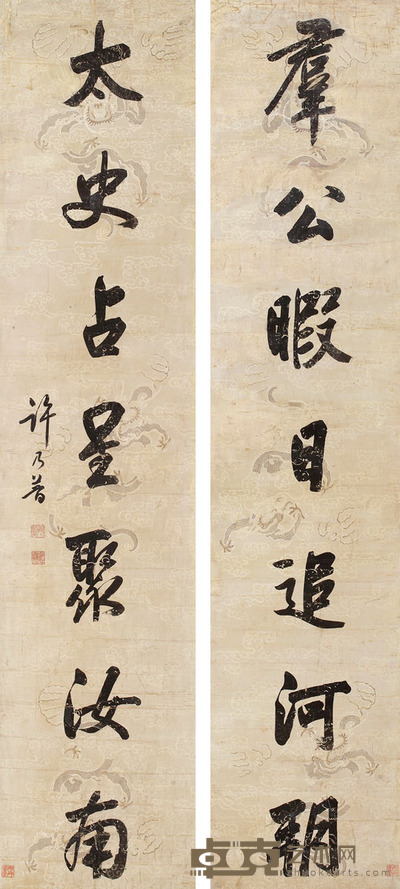 羣公暇日追河朔
太史占星聚汝南
许乃普